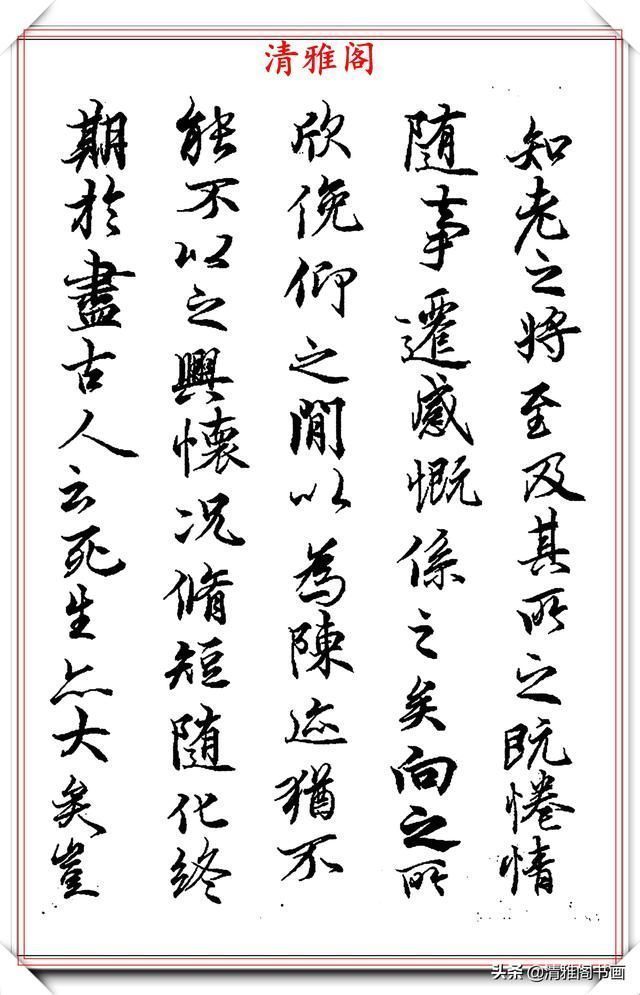 清雅阁
知老之將至及其所之既惓情
隨事遷感慨係之矣向之所
欣俛仰之閒以為陳迹猶不
能不以之興懷况脩短隨化終
期於盡古人云死生亦大矣豈
头条@清雅阁书画